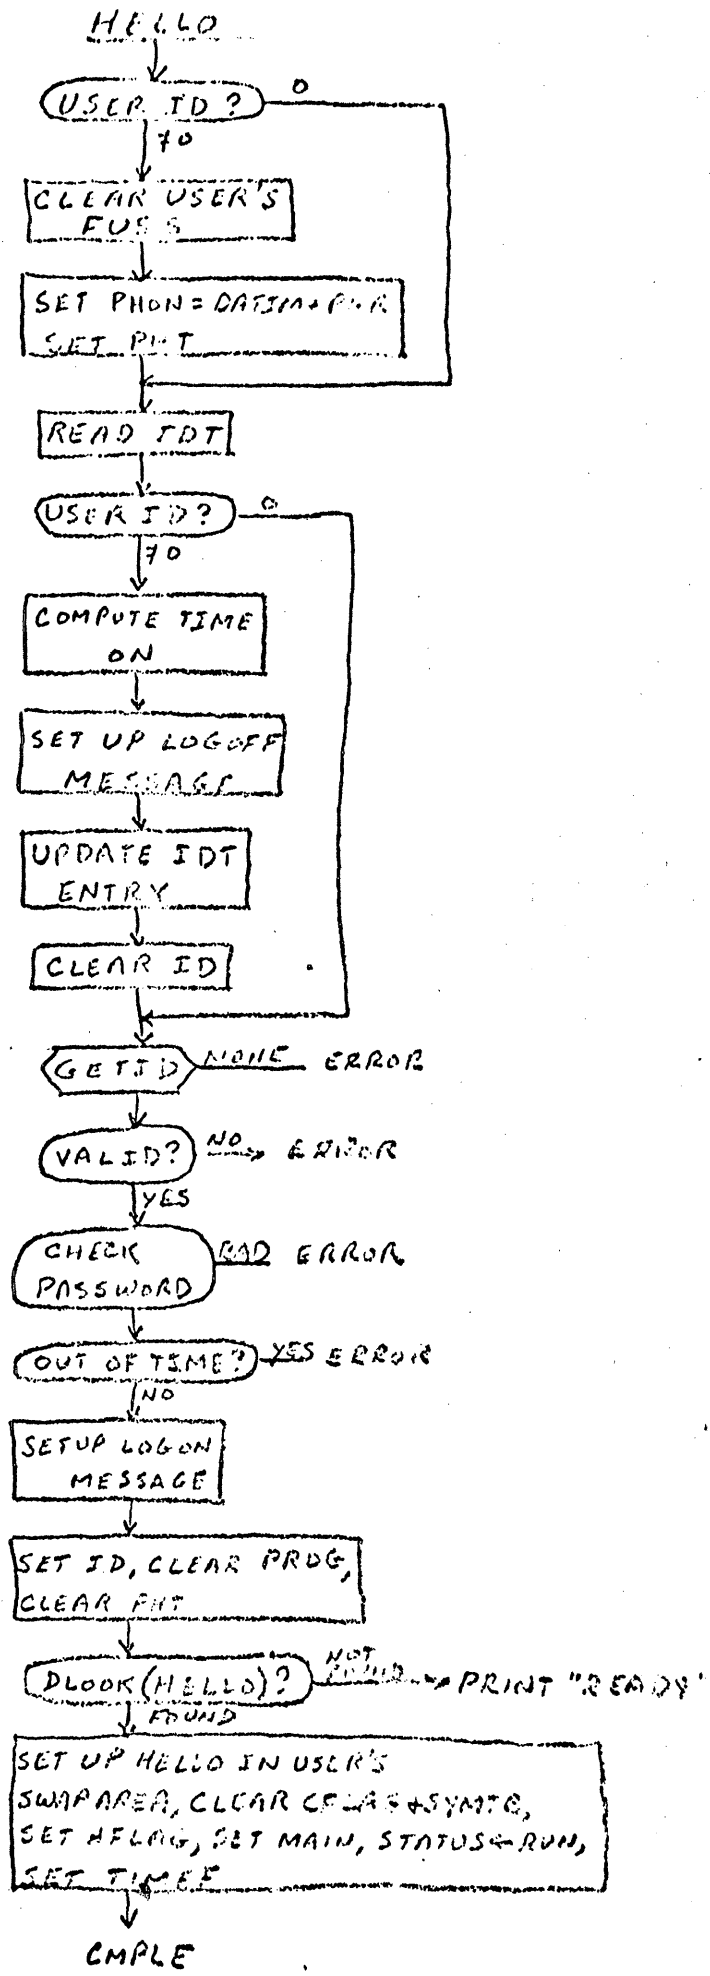 HELLO
USER ID? 0
≠0
CLEAR USER'S
FUSS
SET PHON=DATIM+PHR
SET PHT
READ IDT
USER ID? 0
≠0
COMPUTE TIME
ON
SET UP LOGOFF
MESSAGE
UPDATE IDT
ENTRY
CLEAR ID
GETID NONE ERROR
VALID? NO ERROR
YES
CHECK BAD ERROR
PASSWORD
OUT OF TIME? YES ERROR
NO
SETUP LOGON
MESSAGE
SET ID, CLEAR PROG,
CLEAR PHT
NOT
DLOOK(HELLO)? FOUND PRINT "READY"
FOUND
SET UP HELLO IN USER'S
SWAP AREA, CLEAR CFLAG+SYMTB,
SET HFLAG, SET MAIN, STATUS←RUN,
SET TIMEF
CMPLE